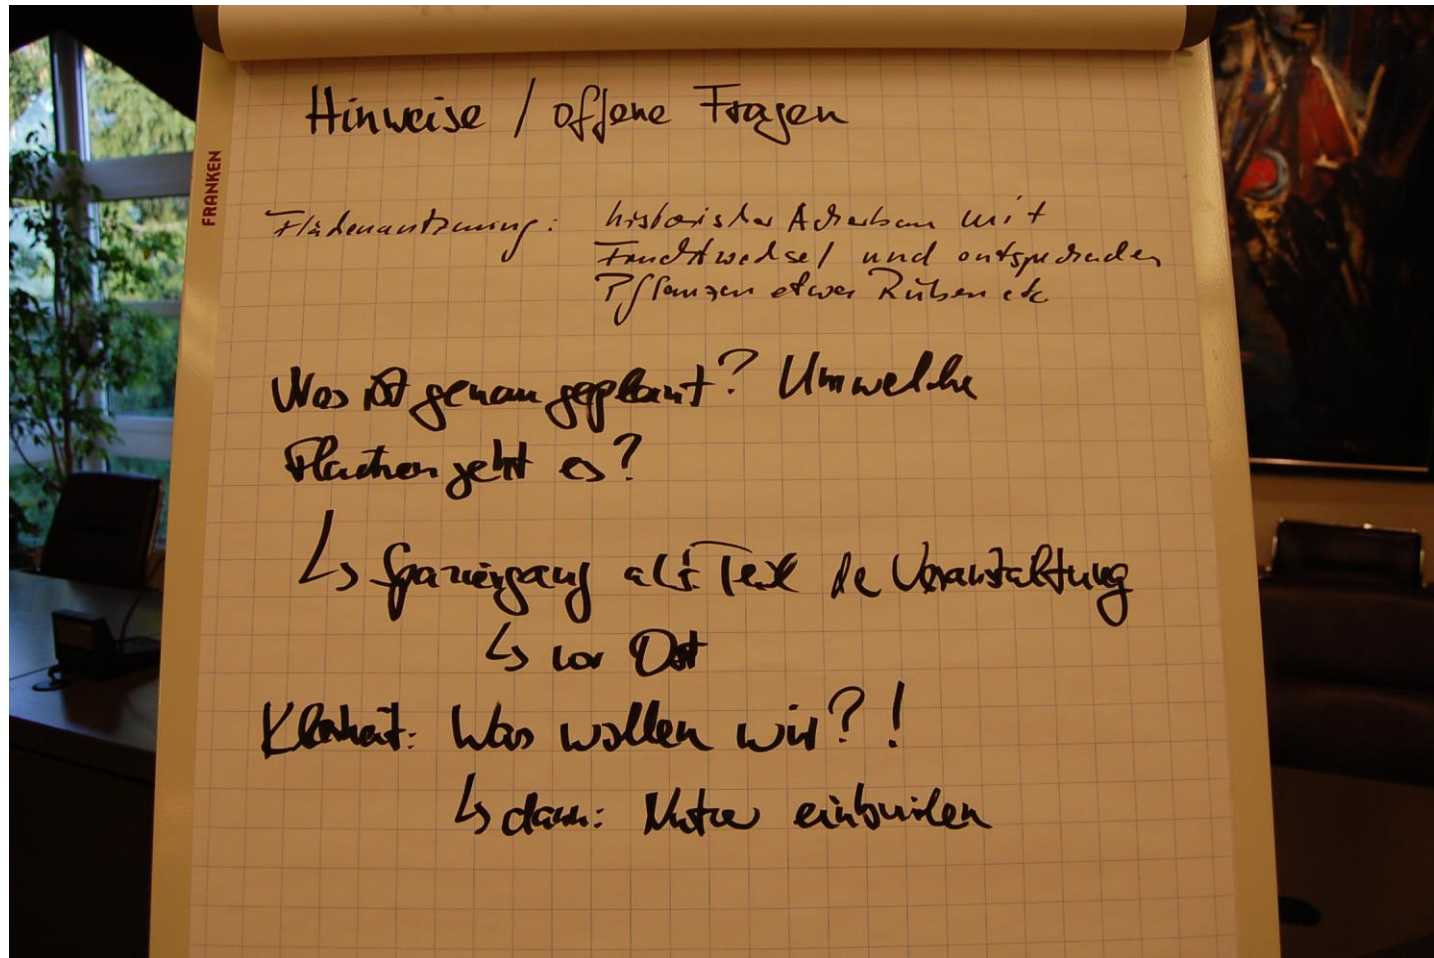 Hinweise / offene Fragen
FRANKEN
Flächennutzung: historischer Ackerbau mit
Fruchtwechsel und entsprechenden
Pflanzen etwa Rüben etc
Was ist genau geplant? Um welche
Flächen geht es?
↳ Spaziergang als Teil der Veranstaltung
↳ vor Ort
Klarheit: Was wollen wir?!
↳ dann: Nutzer einbinden